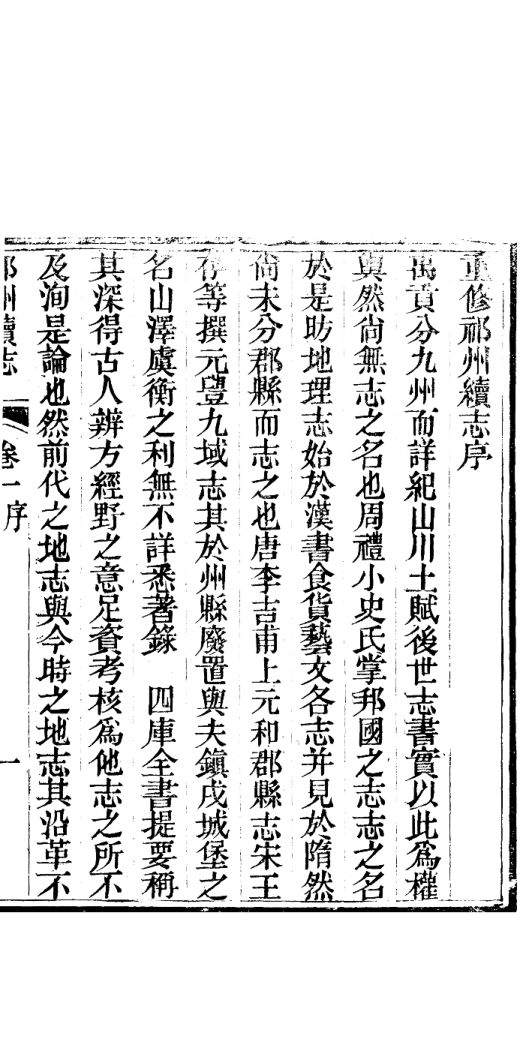 重修祁州續志序
禹貢分九州而詳紀山川土賦後世志書實以此爲權
輿然尙無志之名也周禮小史氏掌邦國之志志之名
於是昉地理志始於漢書食貨藝文各志并見於隋然
尙未分郡縣而志之也唐李吉甫上元和郡縣志宋王
存等撰元豐九域志其於州縣廢置與夫鎭戍城堡之
名山澤虞衡之利無不詳悉著錄 四庫全書提要稱
其深得古人辨方經野之意足資考核爲他志之所不
及洵是論也然前代之地志與今時之地志其沿革不
祁州續志 卷一序 一